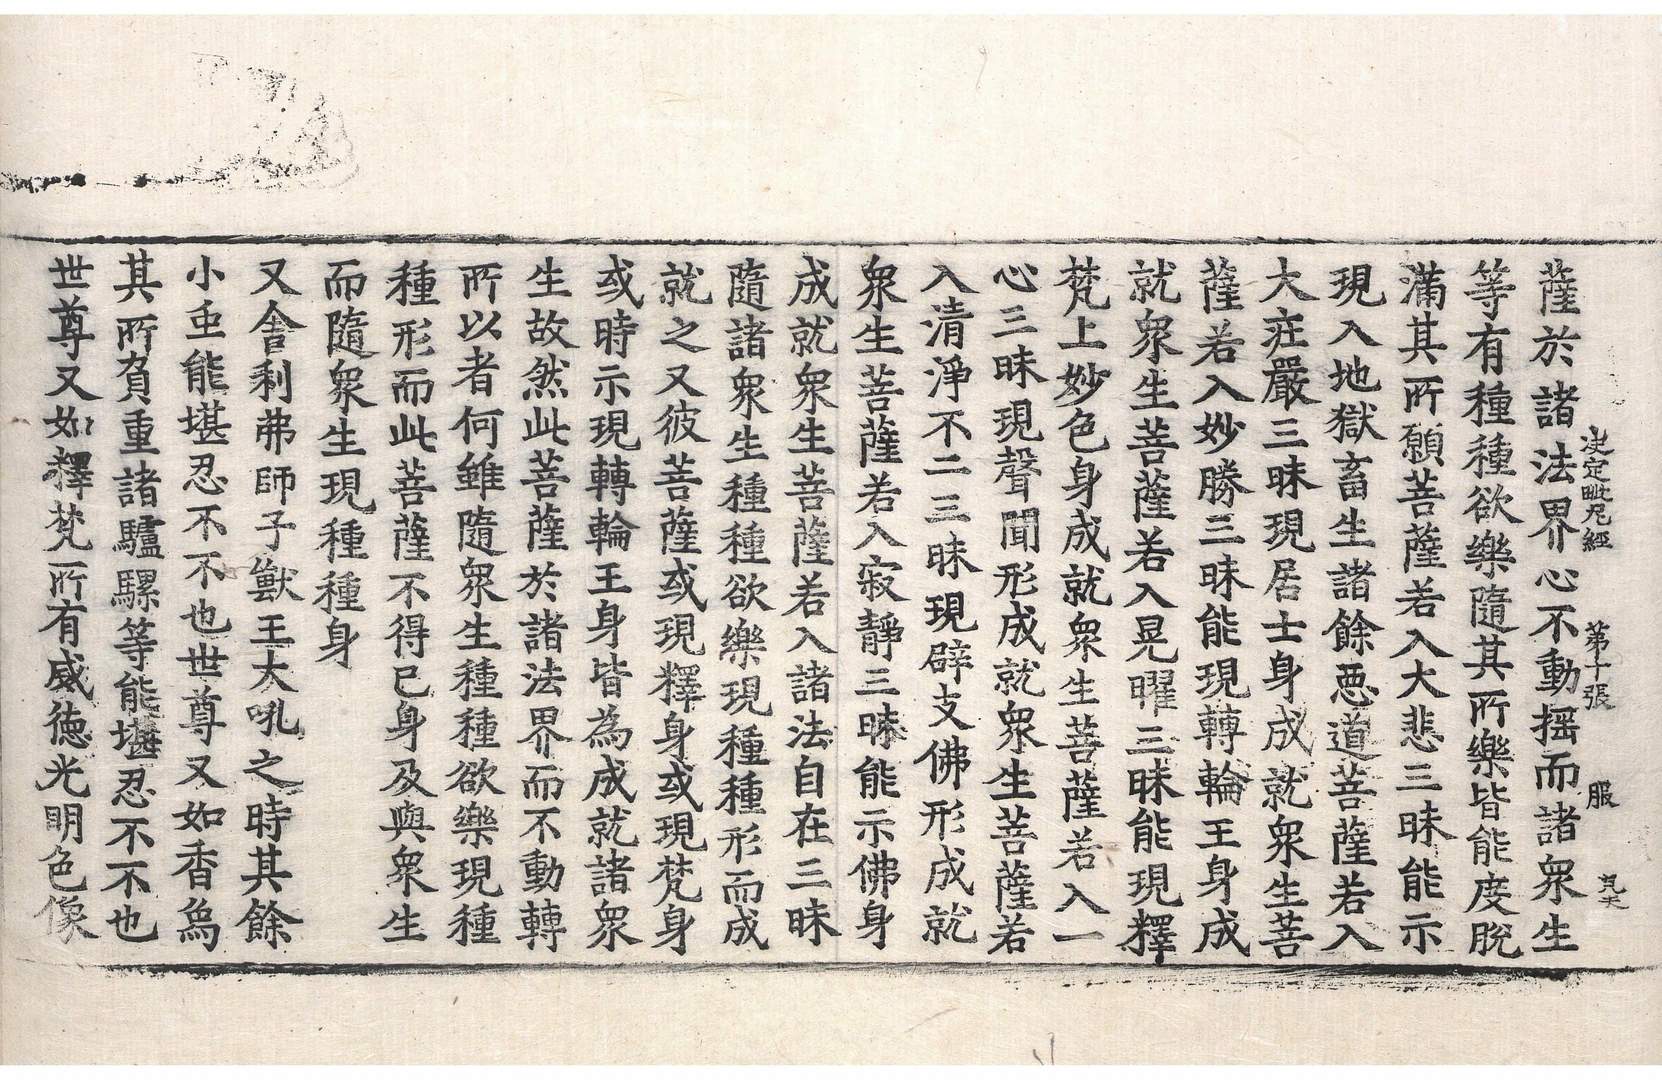 決定毗尼經 第十張 服
薩於諸法界心不動揺而諸衆生
等有種種欲樂隨其所樂皆能度脫
滿其所願菩薩若入大悲三昧能示
現入地獄畜生諸餘惡道菩薩若入
大庄嚴三昧現居士身成就衆生菩
薩若入妙勝三昧能現轉輪王身成
就衆生菩薩若入晃曜三昧能現釋
梵上妙色身成就衆生菩薩若入一
心三昧現聲聞形成就衆生菩薩若
入清淨不二三昧現辟支佛形成就
衆生菩薩若入寂靜三昧能示佛身
成就衆生菩薩若入諸法自在三昧
隨諸衆生種種欲樂現種種形而成
就之又彼菩薩或現釋身或現梵身
或時示現轉輪王身皆為成就諸衆
生故然此菩薩於諸法界而不動轉
所以者何雖隨衆生種種欲樂現種
種形而此菩薩不得已身及與衆生
而隨衆生現種種身
又舍利弗師子獸王大吼之時其餘
小虫能堪忍不不也世尊又如香爲
其所負重諸驢騾等能堪忍不不也
世尊又如釋梵所有威德光明色像